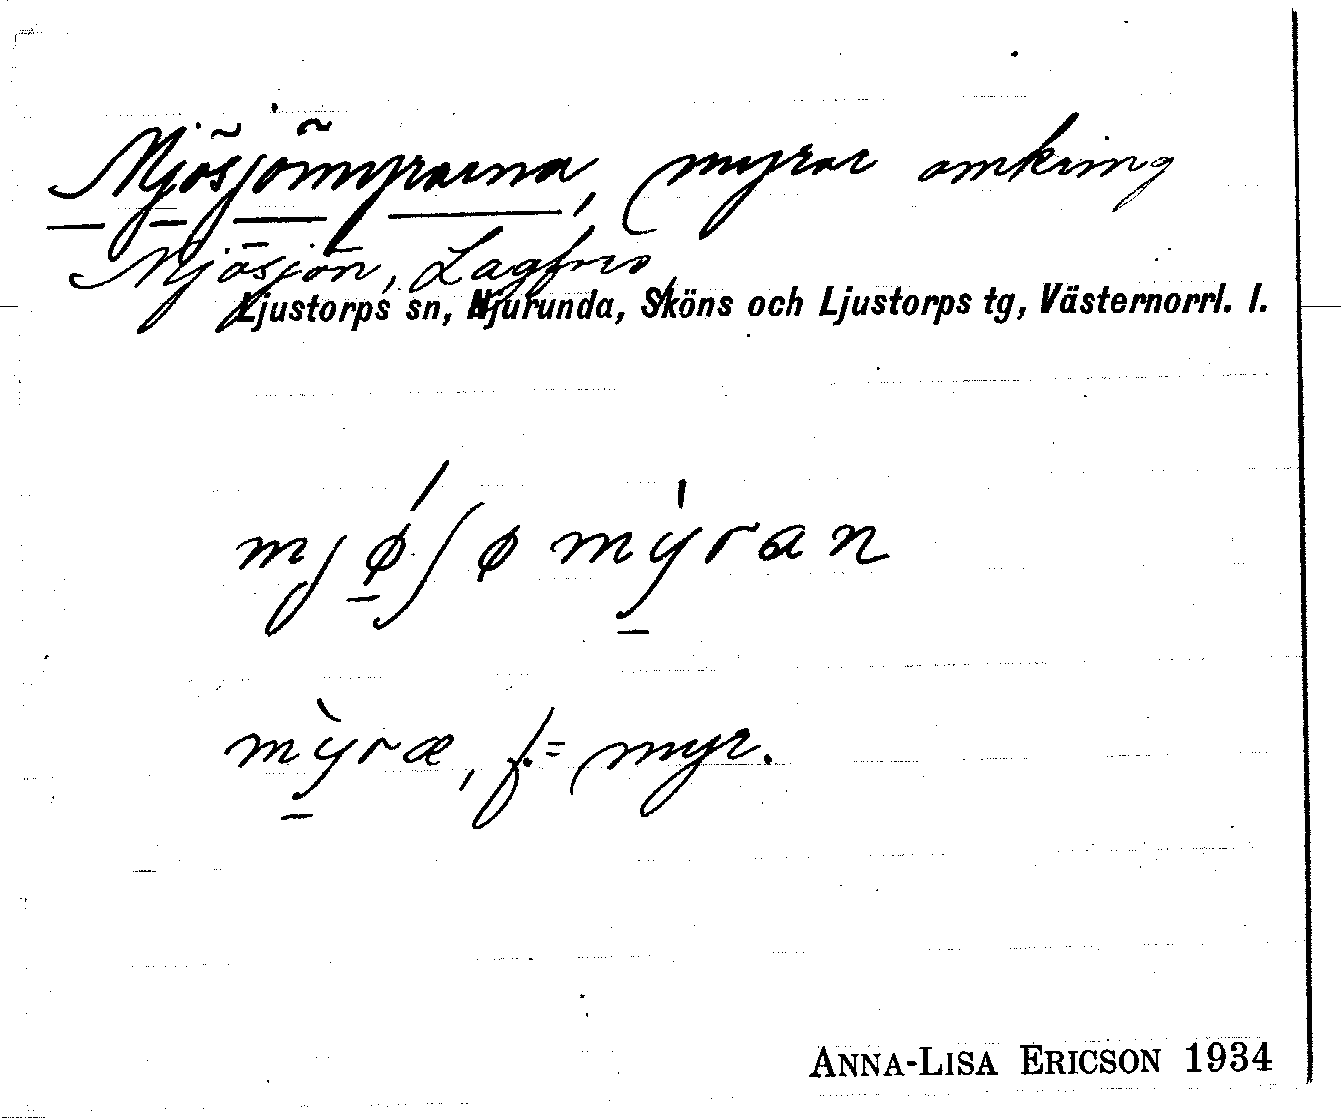 Mjösjömyrarna, myrar omkring
Mjösjön, Lagfors
Ljustorps sn, Njurunda, Sköns och Ljustorps tg, Västernorrl. l.
mjǿʃø mýran
mỳræ, f. = myr.
ANNA-LISA ERICSON 1934